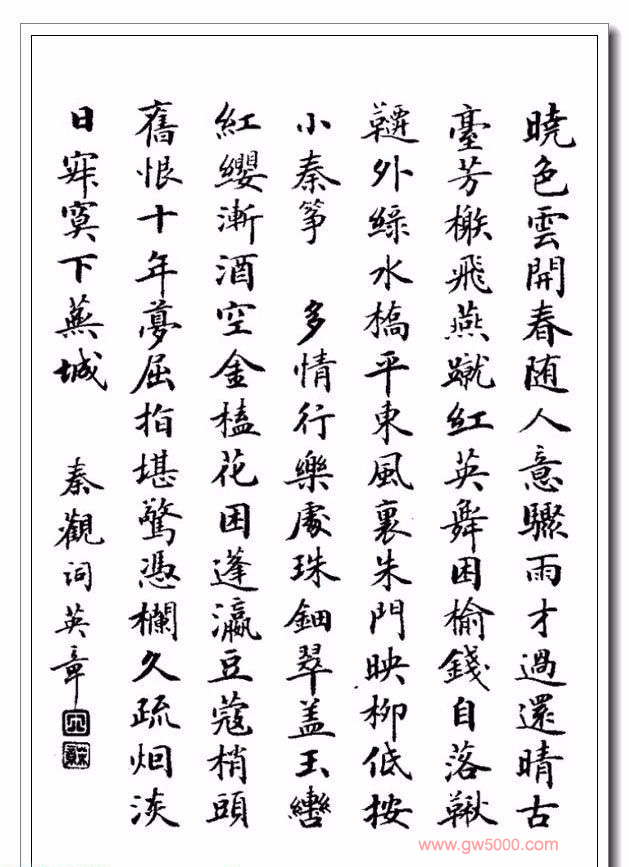 曉色雲開春随人意驟雨才過還晴古
臺芳榭飛燕蹴紅英舞困榆錢自落鞦
韆外綠水橋平東風裏朱門映柳低按
小秦筝 多情行樂處珠鈿翠盖玉轡
紅纓漸酒空金榼花困蓬瀛豆蔻梢頭
舊恨十年夢屈指堪驚憑欄久疏烟淡
日寂寞下蕪城 秦觀詞英章
www.gw5000.com